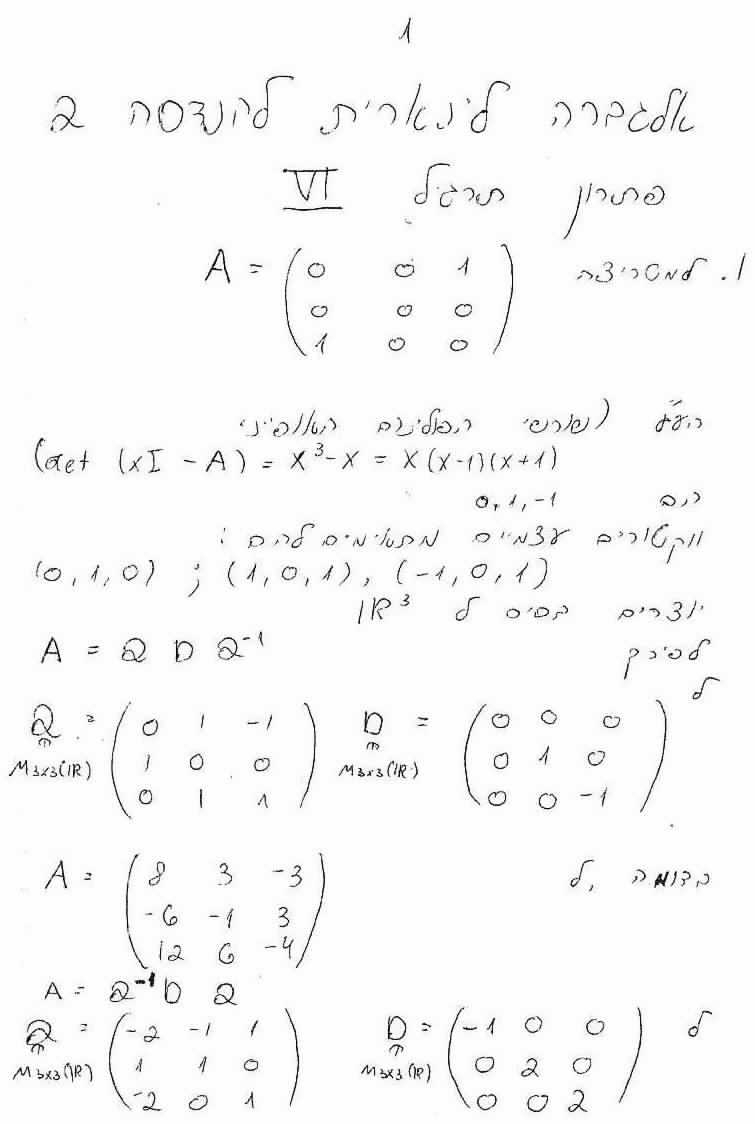 1
אלגברה לינארית להנדסה 2
פתרון תרגיל VI
1. למטריצה A = ( 0 0 1
0 0 0
1 0 0 )
הע"ע (שורשי הפולינום האופיני
(det (xI - A) = x³-x = x(x-1)(x+1)
הם 0,1,-1
ווקטורים עצמיים מתאימים להם :
(0,1,0) ; (1,0,1), (-1,0,1)
יוצרים בסיס ל ℝ³
לפירק A = Q D Q⁻¹
ל
Q = ( 0 1 -1 D = ( 0 0 0
∈ M3x3(ℝ) 1 0 0 ∈ M3x3(ℝ) 0 1 0
0 1 1 ) 0 0 -1 )
בדומה, ל A = ( 8 3 -3
-6 -1 3
12 6 -4 )
A = Q⁻¹ D Q
ל Q = ( -2 -1 1 D = ( -1 0 0
∈ M3x3(ℝ) 1 1 0 ∈ M3x3(ℝ) 0 2 0
-2 0 1 ) 0 0 2 )